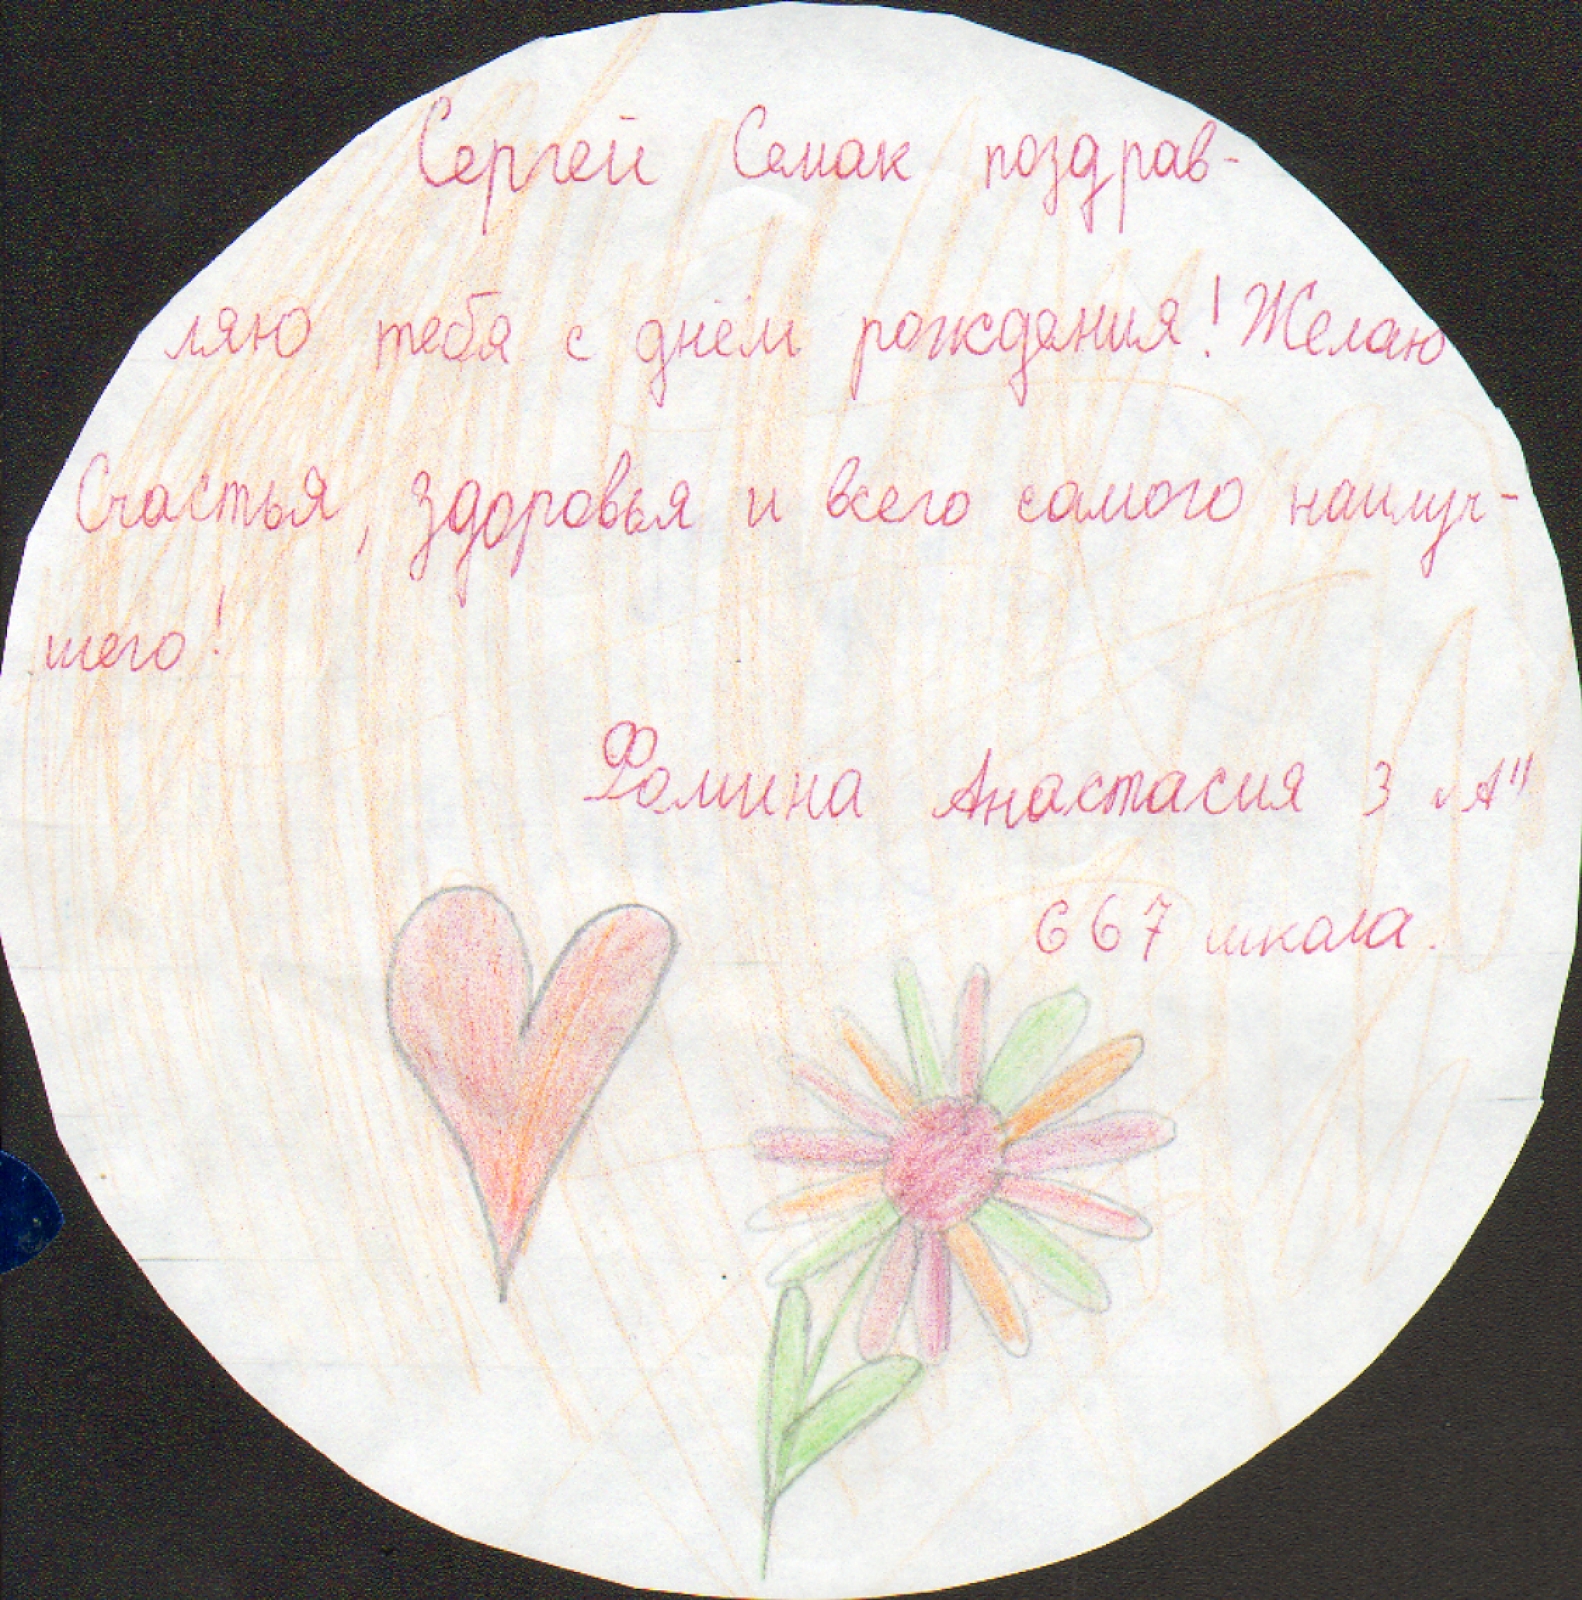 Сергей Семак поздрав-
ляю тебя с днём рождения! Желаю
Счастья, здоровья и всего самого наилуч-
шего!
Фомина Анастасия 3 „А"
667 школа.